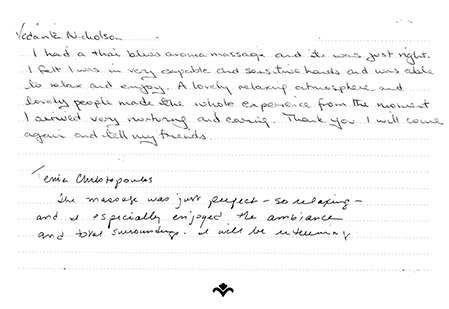 Nicholson
I had a thai blues aroma massage and it was just right.
I felt I was in very capable and sensitive hands and was able
to relax and enjoy. A lovely relaxing atmosphere and
lovely people made the whole experience from the moment
I arrived very nurturing and caring. Thank you I will come
again and tell my friends.
Christopoulos
The massage was just perfect - so relaxing -
and I especially enjoyed the ambiance
and total surroundings. I will be returning